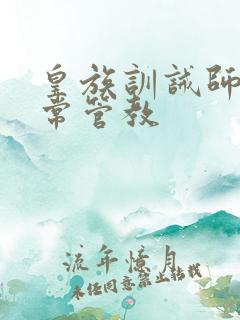 皇族訓誡師
常管教
流年憶月
未經同意禁止轉載